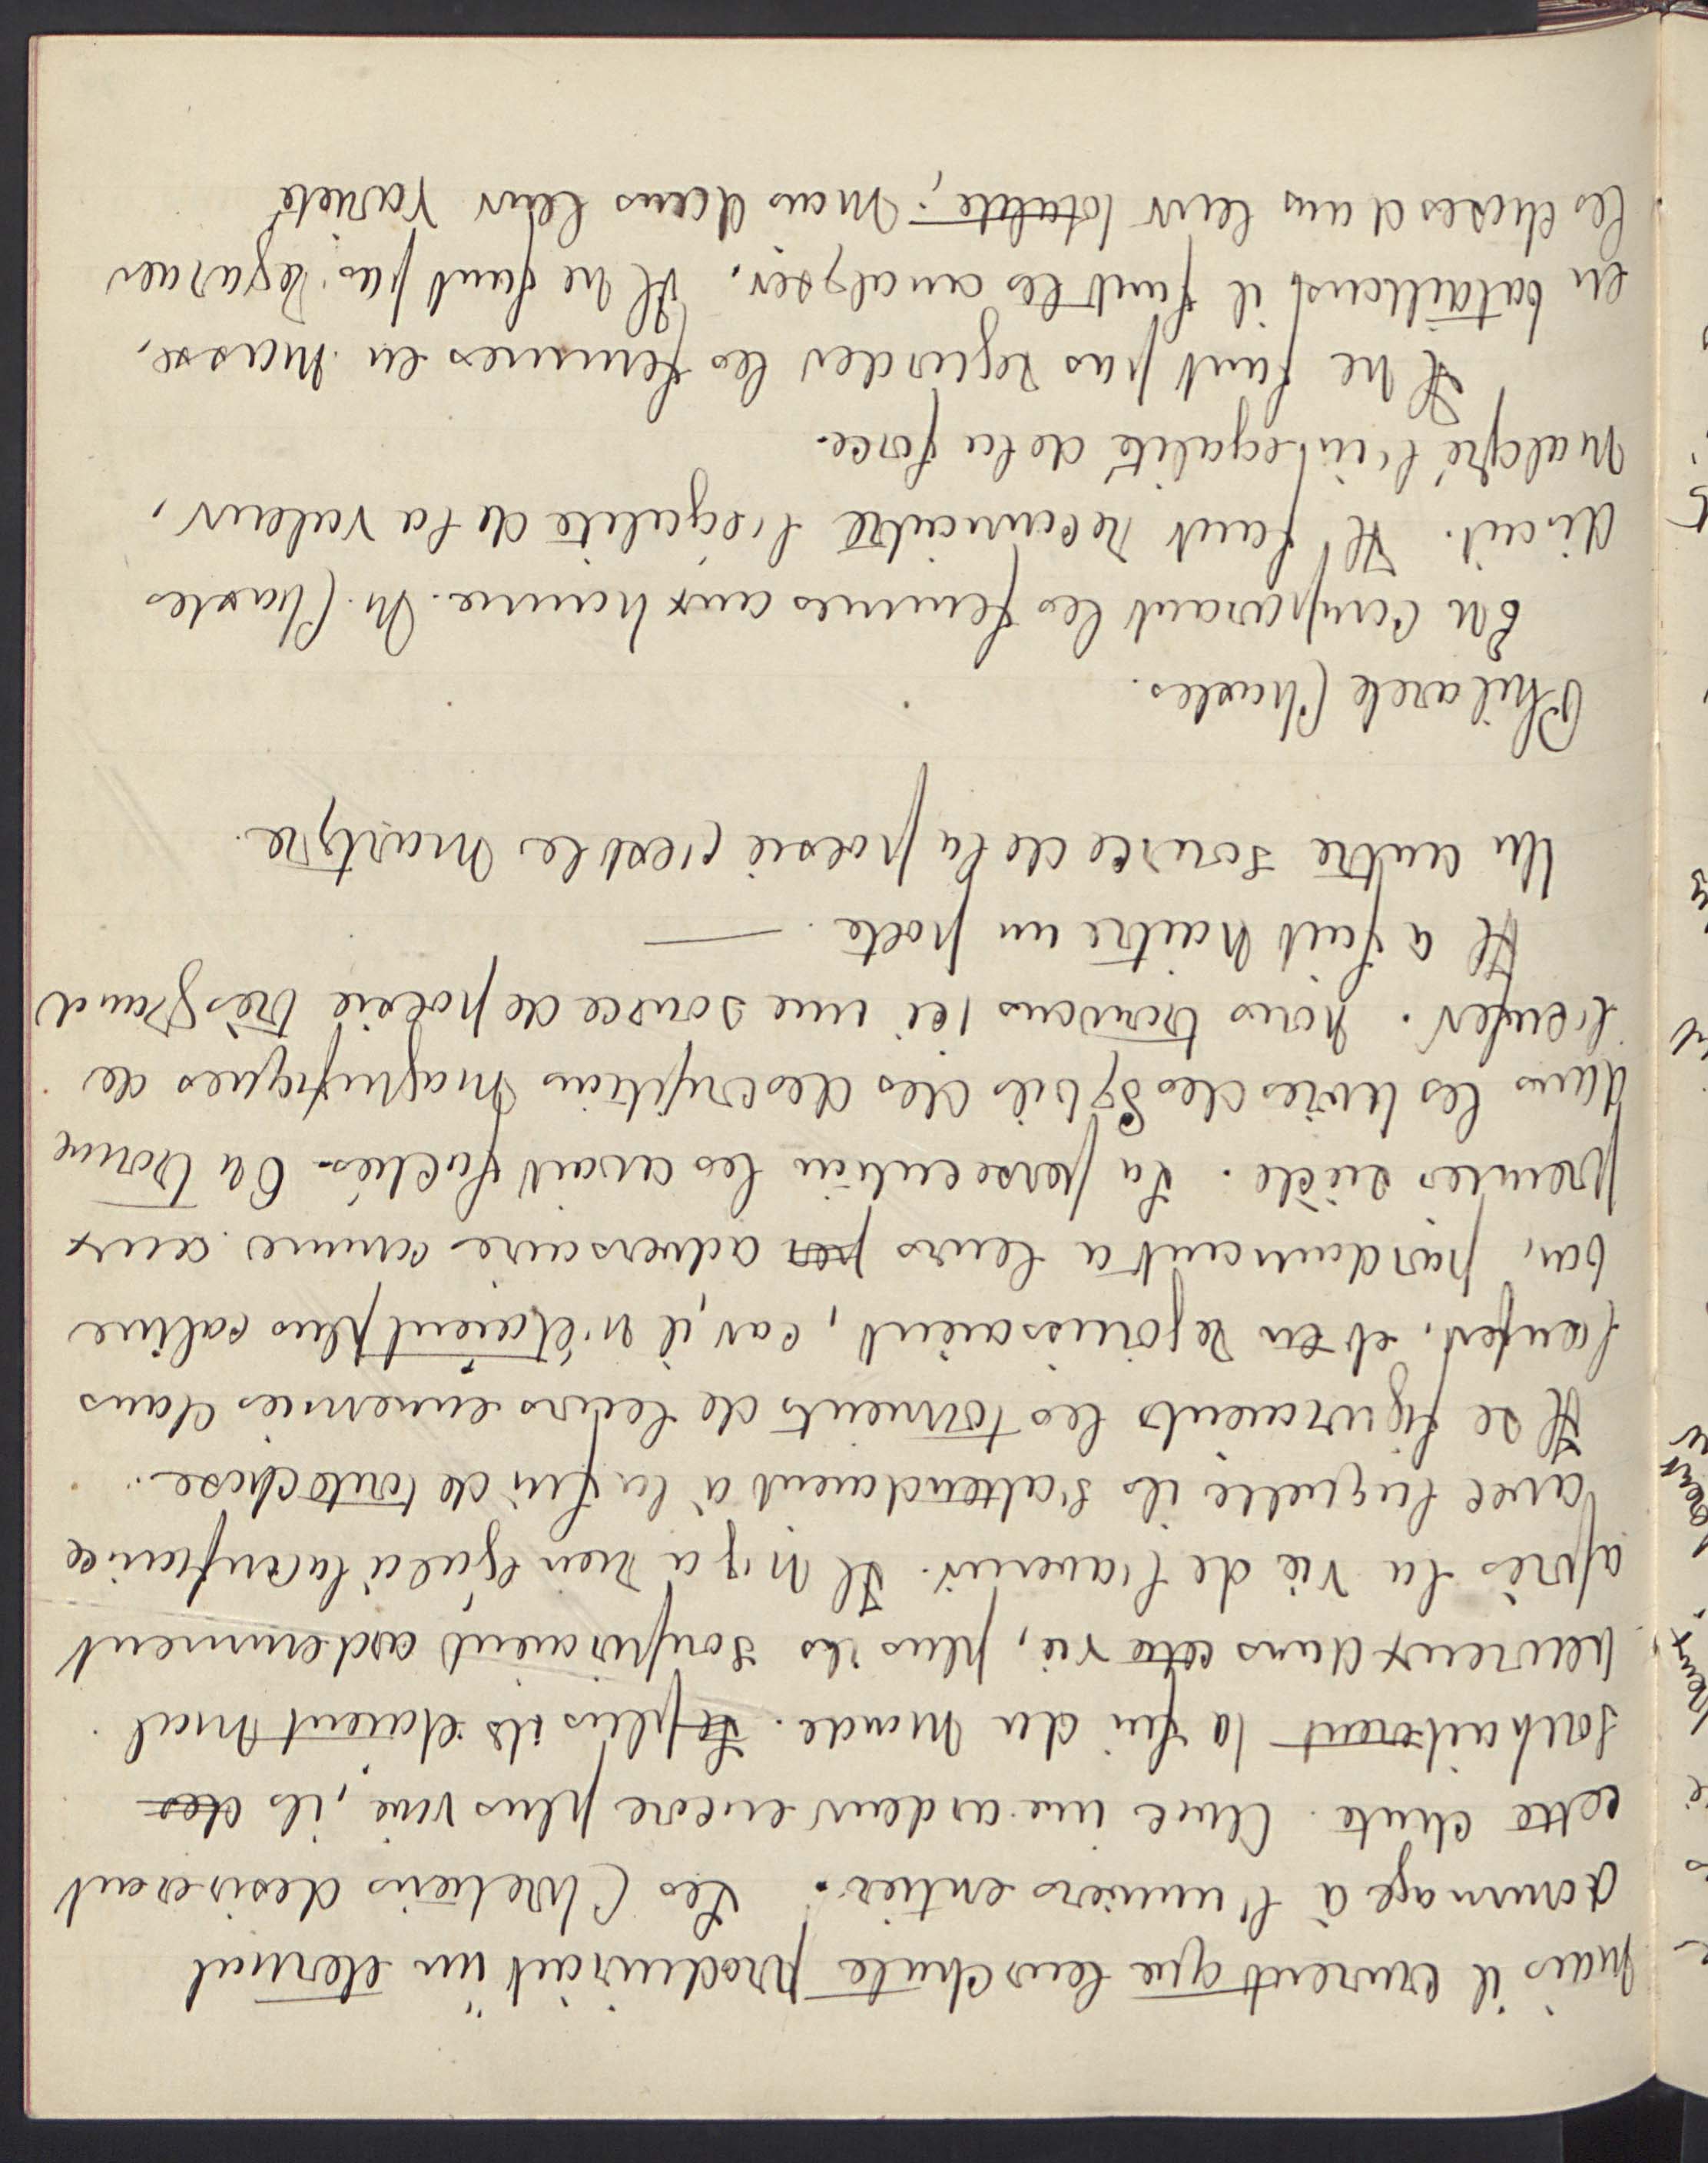 mais il crurent que leur chute produirait un eternal
dommage à l'univers entier. Les Chretiens desirerant
cette chute. Avec une ardeur encore plus vive, ils des
souhaiterent la fin du monde. Le plus ils étaient mal
heureux dans cette vie, plus ils soupiraient ardemment
après la vie de l'avenir. Il n'y a rien égal à la confiance
avec laquelle ils s'attendaient à la fin de toute chose.
Il se figuraients les torments de leurs ennemies dans
l'enfer, et en rejouissaient, car, il n'étaient plus calme
pardannant a leurs per adversaire comme aux
premier siècle. La persecution les avait fachés. On trouve
dans les livres des Sybils des descriptions magnifiques de
l'enfer. Nous trouvons ici une source de poesie très grand
Il a fait naitre un poete. —
Un autre source de la poesie c'est le martyre.
Philarete Chasles.
En comparant les femmes aux homme. M. Chasles
disait. Il faut reconnaitre l'egalité de la valeur,
malgré l'inegalité de la force.
Il ne faut pas regarder les femmes en masse,
en bataillons, il faut les analyser. Il ne faut pas regarder
les choses dans leur totalité, mais dans leur varieté